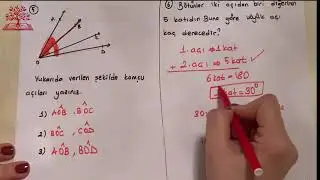 5
A
B
C
D
O
Yukarıda verilen şekilde komşu
açıları yazınız.
1) AOB, BOC
2) BOC, COD
3) AOB, BOD
6 Bütünler iki açıdan biri diğerinin
5 katıdır. Buna göre büyük açı
kaç derecedir?
1. açı → 1 kat
+ 2. açı → 5 kat
6 kat = 180
kat = 30°
30